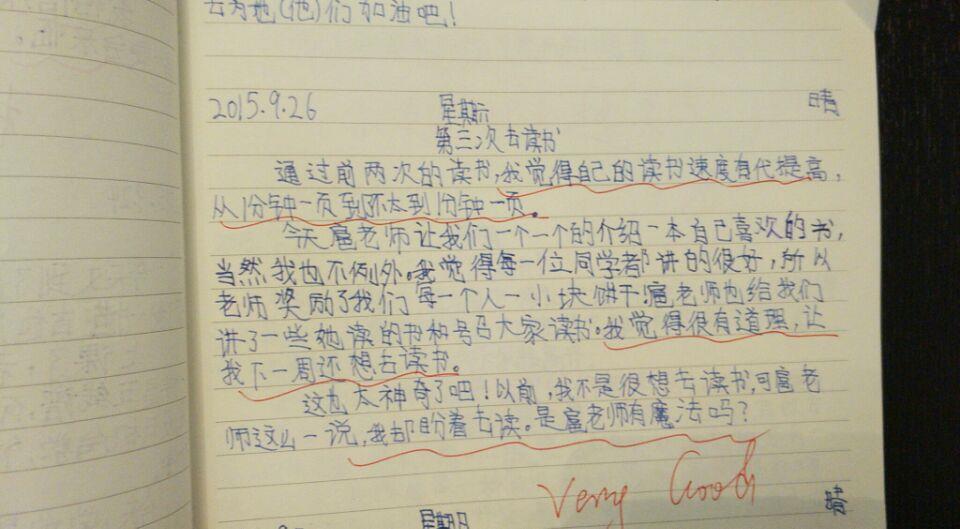 去为她(他)们加油吧!
2015.9.26 星期六 晴
第三次去读书
通过前两次的读书,我觉得自己的读书速度有代提高,
从1分钟一页到不太到1分钟一页。
今天扈老师让我们一个一个的介绍一本自己喜欢的书,
当然我也不例外。我觉得每一位同学都讲的很好,所以
老师奖励了我们每一个人一小块饼干!扈老师也给我们
讲了一些她读的书和号召大家读书。我觉得很有道理,让
我下一周还想去读书。
这也太神奇了吧!以前,我不是很想去读书,可扈老
师这么一说,我却盼着去读。是扈老师有魔法吗?
Very Good
星期日 晴